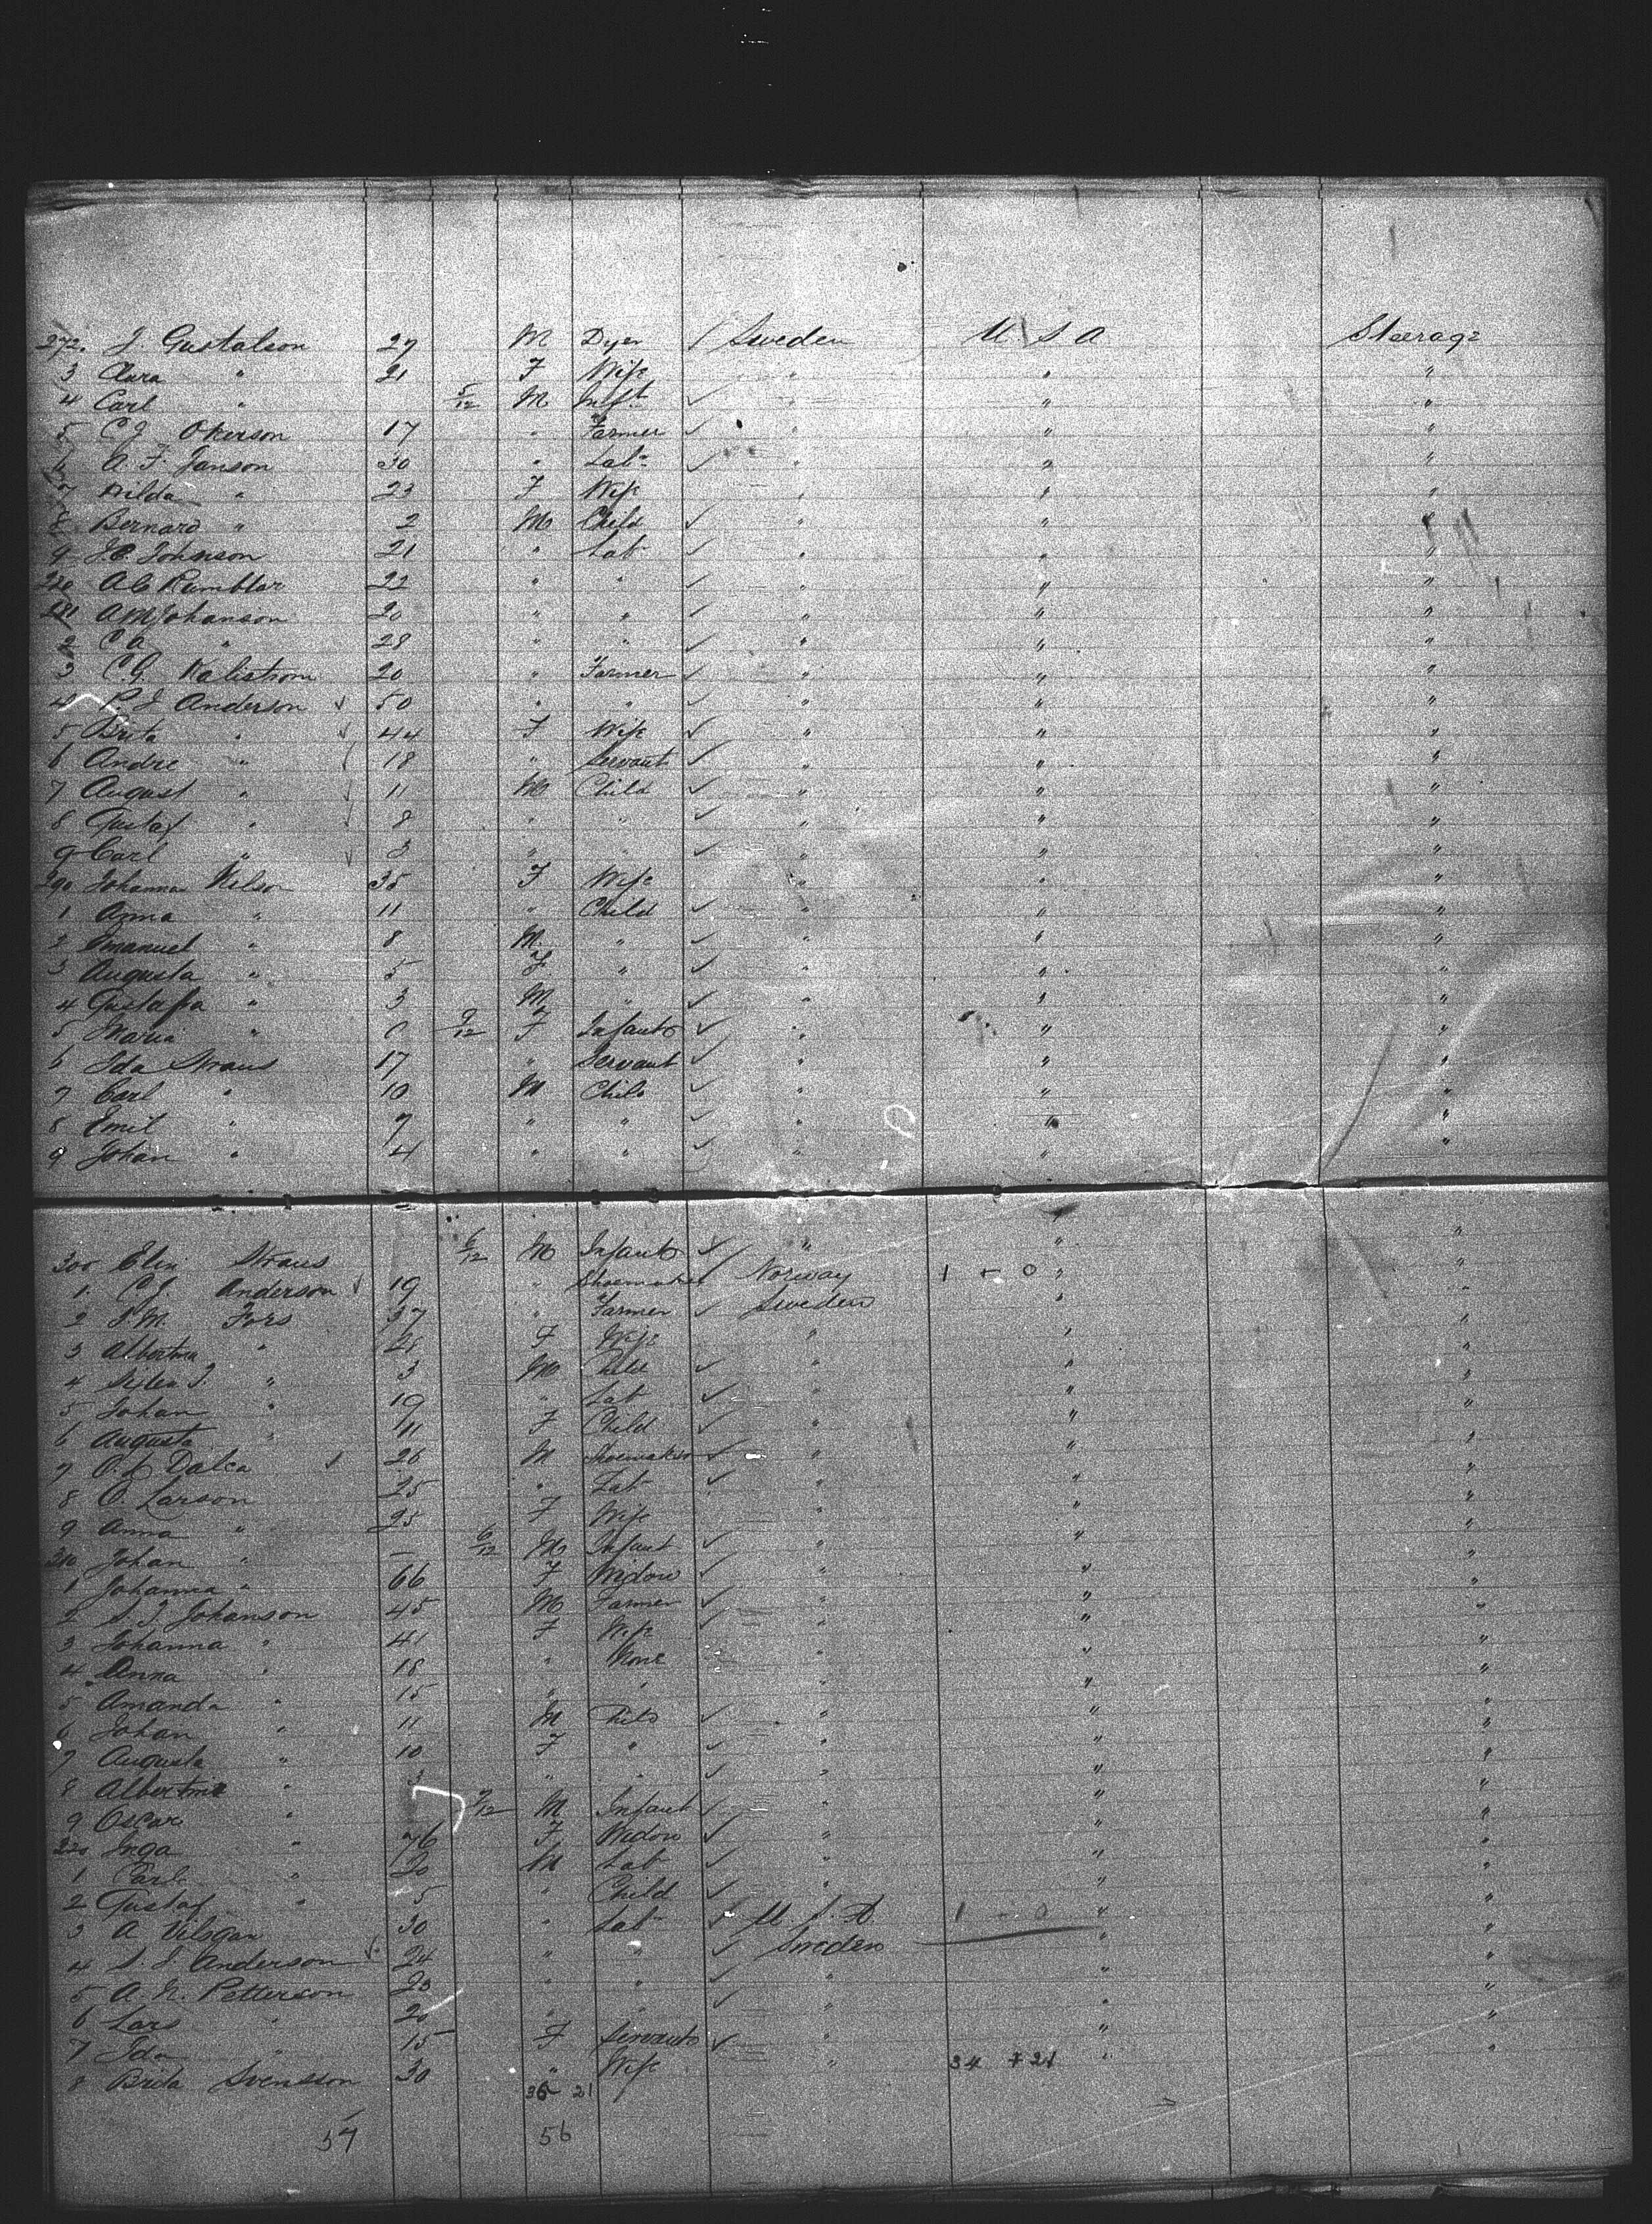 272. J. Gustafson 29 M Dyer ✓ Sweden U.S.A Steerage
3 Clara " 21 F Wife " " "
4 Carl " 5/12 M Inft ✓ " " "
5 C.J. Okerson 17 " Farmer ✓ " " "
6 A.F. Janson 30 " Labr ✓ " " "
7 Hilda " 23 F Wife " " "
8 Bernard " 2 M Child ✓ " " "
9 J.C. Johnson 21 " Lab ✓ " " "
A C 22 " " ✓ " " "
281 A M Johanson 20 " " ✓ " " "
2 C A " 28 " " ✓ " " "
3 C.G. Kalistrom 20 " Farmer ✓ " " "
4 P.J. Anderson ✓ 50 " " ✓ " " "
5 Brita " ✓ 44 F Wife ✓ " " "
6 Andre " 18 " Servant ✓ " " "
7 August " ✓ 11 M Child ✓ " " "
8 Gustaf " ✓ 8 " " ✓ " " "
9 Carl " ✓ 3 " " ✓ " " "
290 Johanna Nilson 35 F Wife " " "
1 Anna " 11 " Child ✓ " " "
2 Emanuel " 8 M. " ✓ " " "
3 Augusta " 5 F " ✓ " " "
4 Gustafva " 3 M " ✓ " " "
5 Maria " 0 9/12 F Infant ✓ " " "
6 Ida Straus 17 " Servant ✓ " " "
7 Carl " 10 M Child ✓ " " "
8 Emil " 7 " " ✓ " " "
9 Johan " 4 " " ✓ " " "
300 Elin Straus 6/12 M Infant ✓ " " "
1. C.J. Anderson ✓ 19 " Shoemaker Norway 1 - 0 " "
2 Fors 37 " Farmer ✓ Sweden " "
3 Albertina " F Wife " " "
4 " 3 M Child ✓ " " "
5 Johan " 19 " Lab ✓ " " "
6 Augusta " 11 F Child ✓ " " "
7 Dalca ✓ 26 M Shoemaker ✓ " " "
8 O. Larson 25 " Lab ✓ " "
9 Anna " 25 F Wife " "
310 Johan " — 6/12 M Infant ✓ " " "
1 Johanna " 66 F Widow ✓ " " "
2 S.J. Johanson 45 M Farmer ✓ " " "
3 Johanna " 41 F Wife ✓ " " "
4 Anna " 18 " None " " "
5 Amanda " 15 " " " " "
6 Johan " 11 M Child ✓ " " "
7 Augusta " 10 F " ✓ " " "
8 Albertine " " " ✓ " " "
9 Oscar " 9/12 M Infant ✓ " " "
320 Inga " 76 F Widow ✓ " " "
1 Carl " 20 M Lab ✓ " " "
2 Gustaf " 5 " Child ✓ " "
3 A Vilsgan 30 " Lab ✓ U.S.A. 1 - 0 " "
4 S.J. Anderson ✓ 24 " " ✓ Sweden " "
5 A.N. Petterson 23 " " ✓ " " "
6 Lars " 20 " " ✓ " " "
7 Ida " 15 F Servant ✓ " " "
8 Brita Svensson 30 " Wife " 34 + 21 " "
36 21
57 56